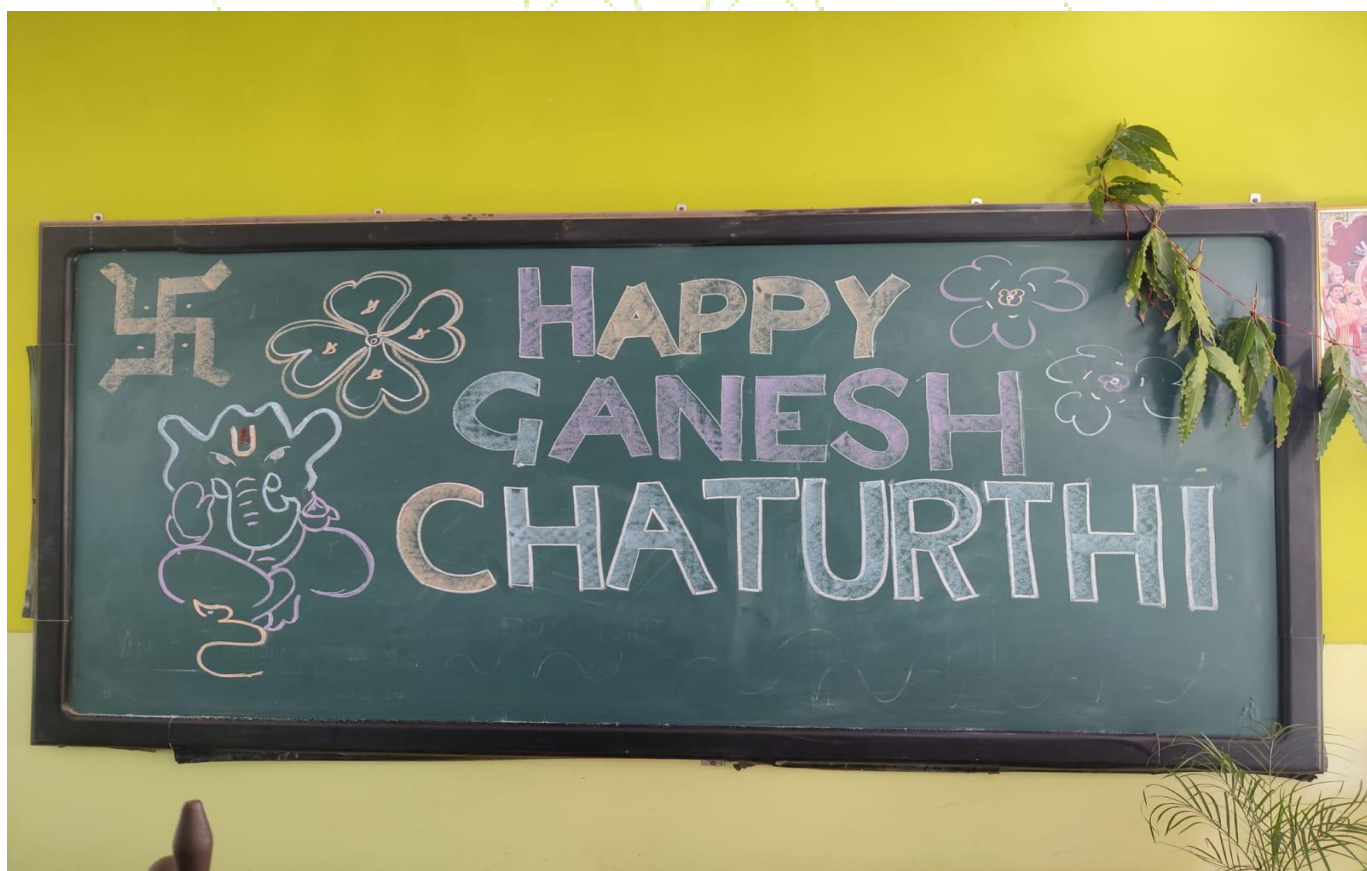 HAPPY
GANESH
CHATURTHI